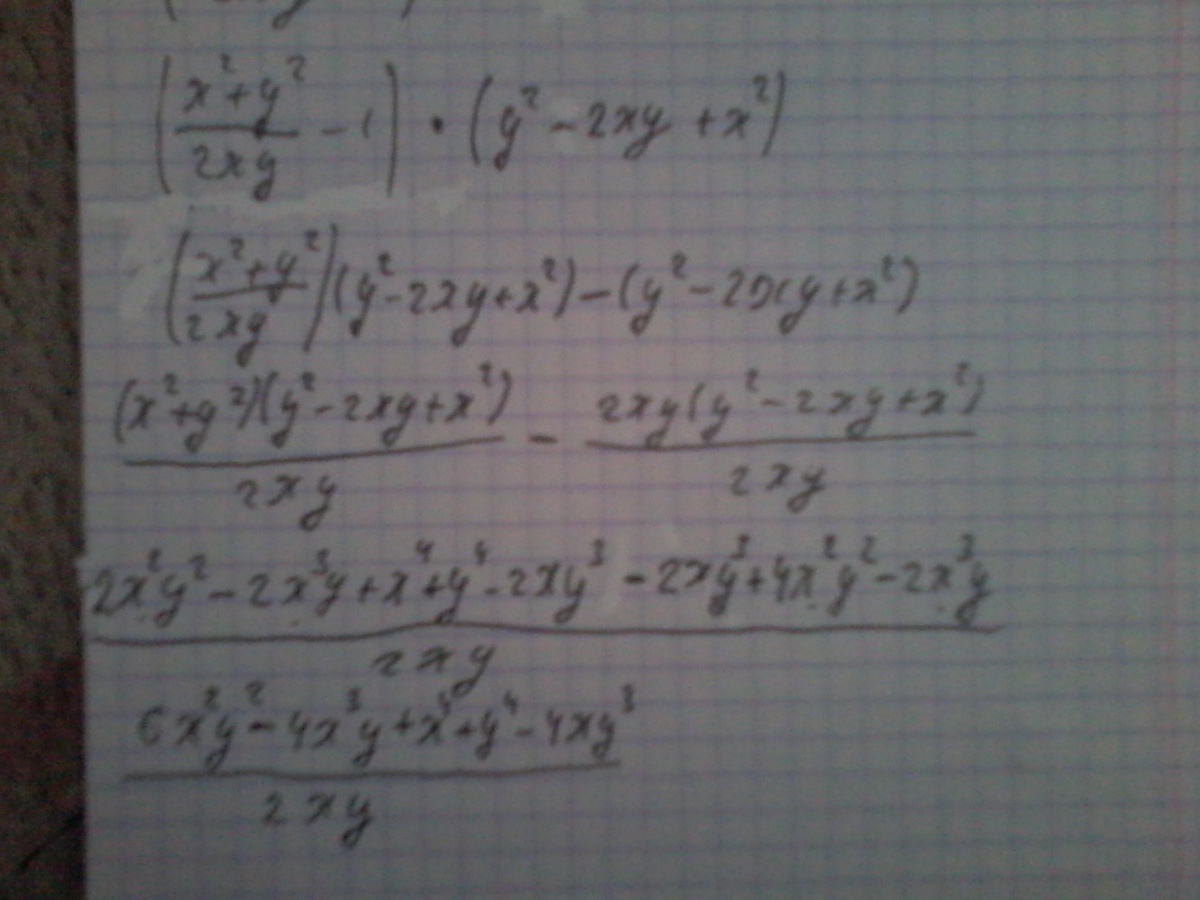 (x²+y²/2xy - 1) · (y² - 2xy + x²)
(x²+y²/2xy)(y²-2xy+x²)-(y²-2xy+x²)
(x²+y²)(y²-2xy+x²)/2xy - 2xy(y²-2xy+x²)/2xy
2x²y²-2x³y+x⁴+y⁴-2xy³-2xy³+4x²y²-2x³y/2xy
6x²y²-4x³y+x⁴+y⁴-4xy³/2xy